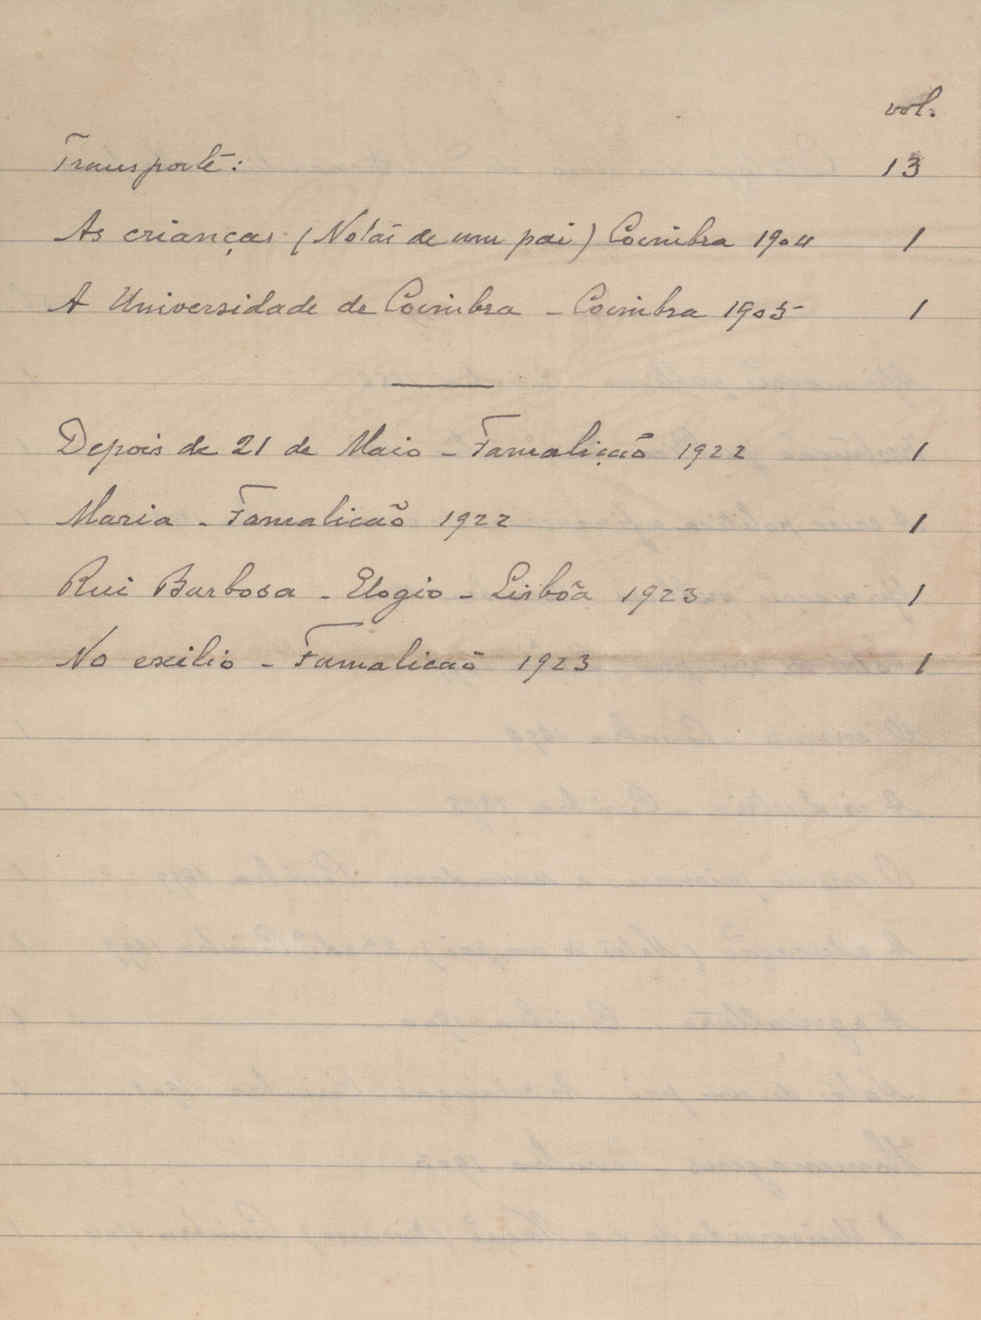 vol.
Transporte: 13
As crianças (Notas de um pai) Coimbra 1904 1
A Universidade de Coimbra - Coimbra 1905 1
Depois de 21 de Maio - Famalicão 1922 1
Maria - Famalicão 1922 1
Rui Barbosa - Elogio - Lisbôa 1923 1
No exilio - Famalicão 1923 1